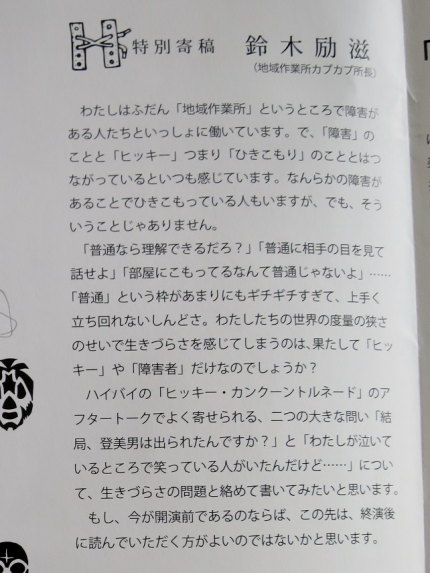 特別寄稿　鈴木励滋
（地域作業所カプカプ所長）
わたしはふだん「地域作業所」というところで障害が
ある人たちといっしょに働いています。で、「障害」の
ことと「ヒッキー」つまり「ひきこもり」のこととはつ
ながっているといつも感じています。なんらかの障害が
あることでひきこもっている人もいますが、でも、そう
いうことじゃありません。
「普通なら理解できるだろ？」「普通に相手の目を見て
話せよ」「部屋にこもってるなんて普通じゃないよ」……
「普通」という枠があまりにもギチギチすぎて、上手く
立ち回れないしんどさ。わたしたちの世界の度量の狭さ
のせいで生きづらさを感じてしまうのは、果たして「ヒッ
キー」や「障害者」だけなのでしょうか？
ハイバイの「ヒッキー・カンクーントルネード」のア
フタートークでよく寄せられる、二つの大きな問い「結
局、登美男は出られたんですか？」と「わたしが泣いて
いるところで笑っている人がいたんだけど……」につい
て、生きづらさの問題と絡めて書いてみたいと思います。
もし、今が開演前であるのならば、この先は、終演後
に読んでいただく方がよいのではないかと思います。